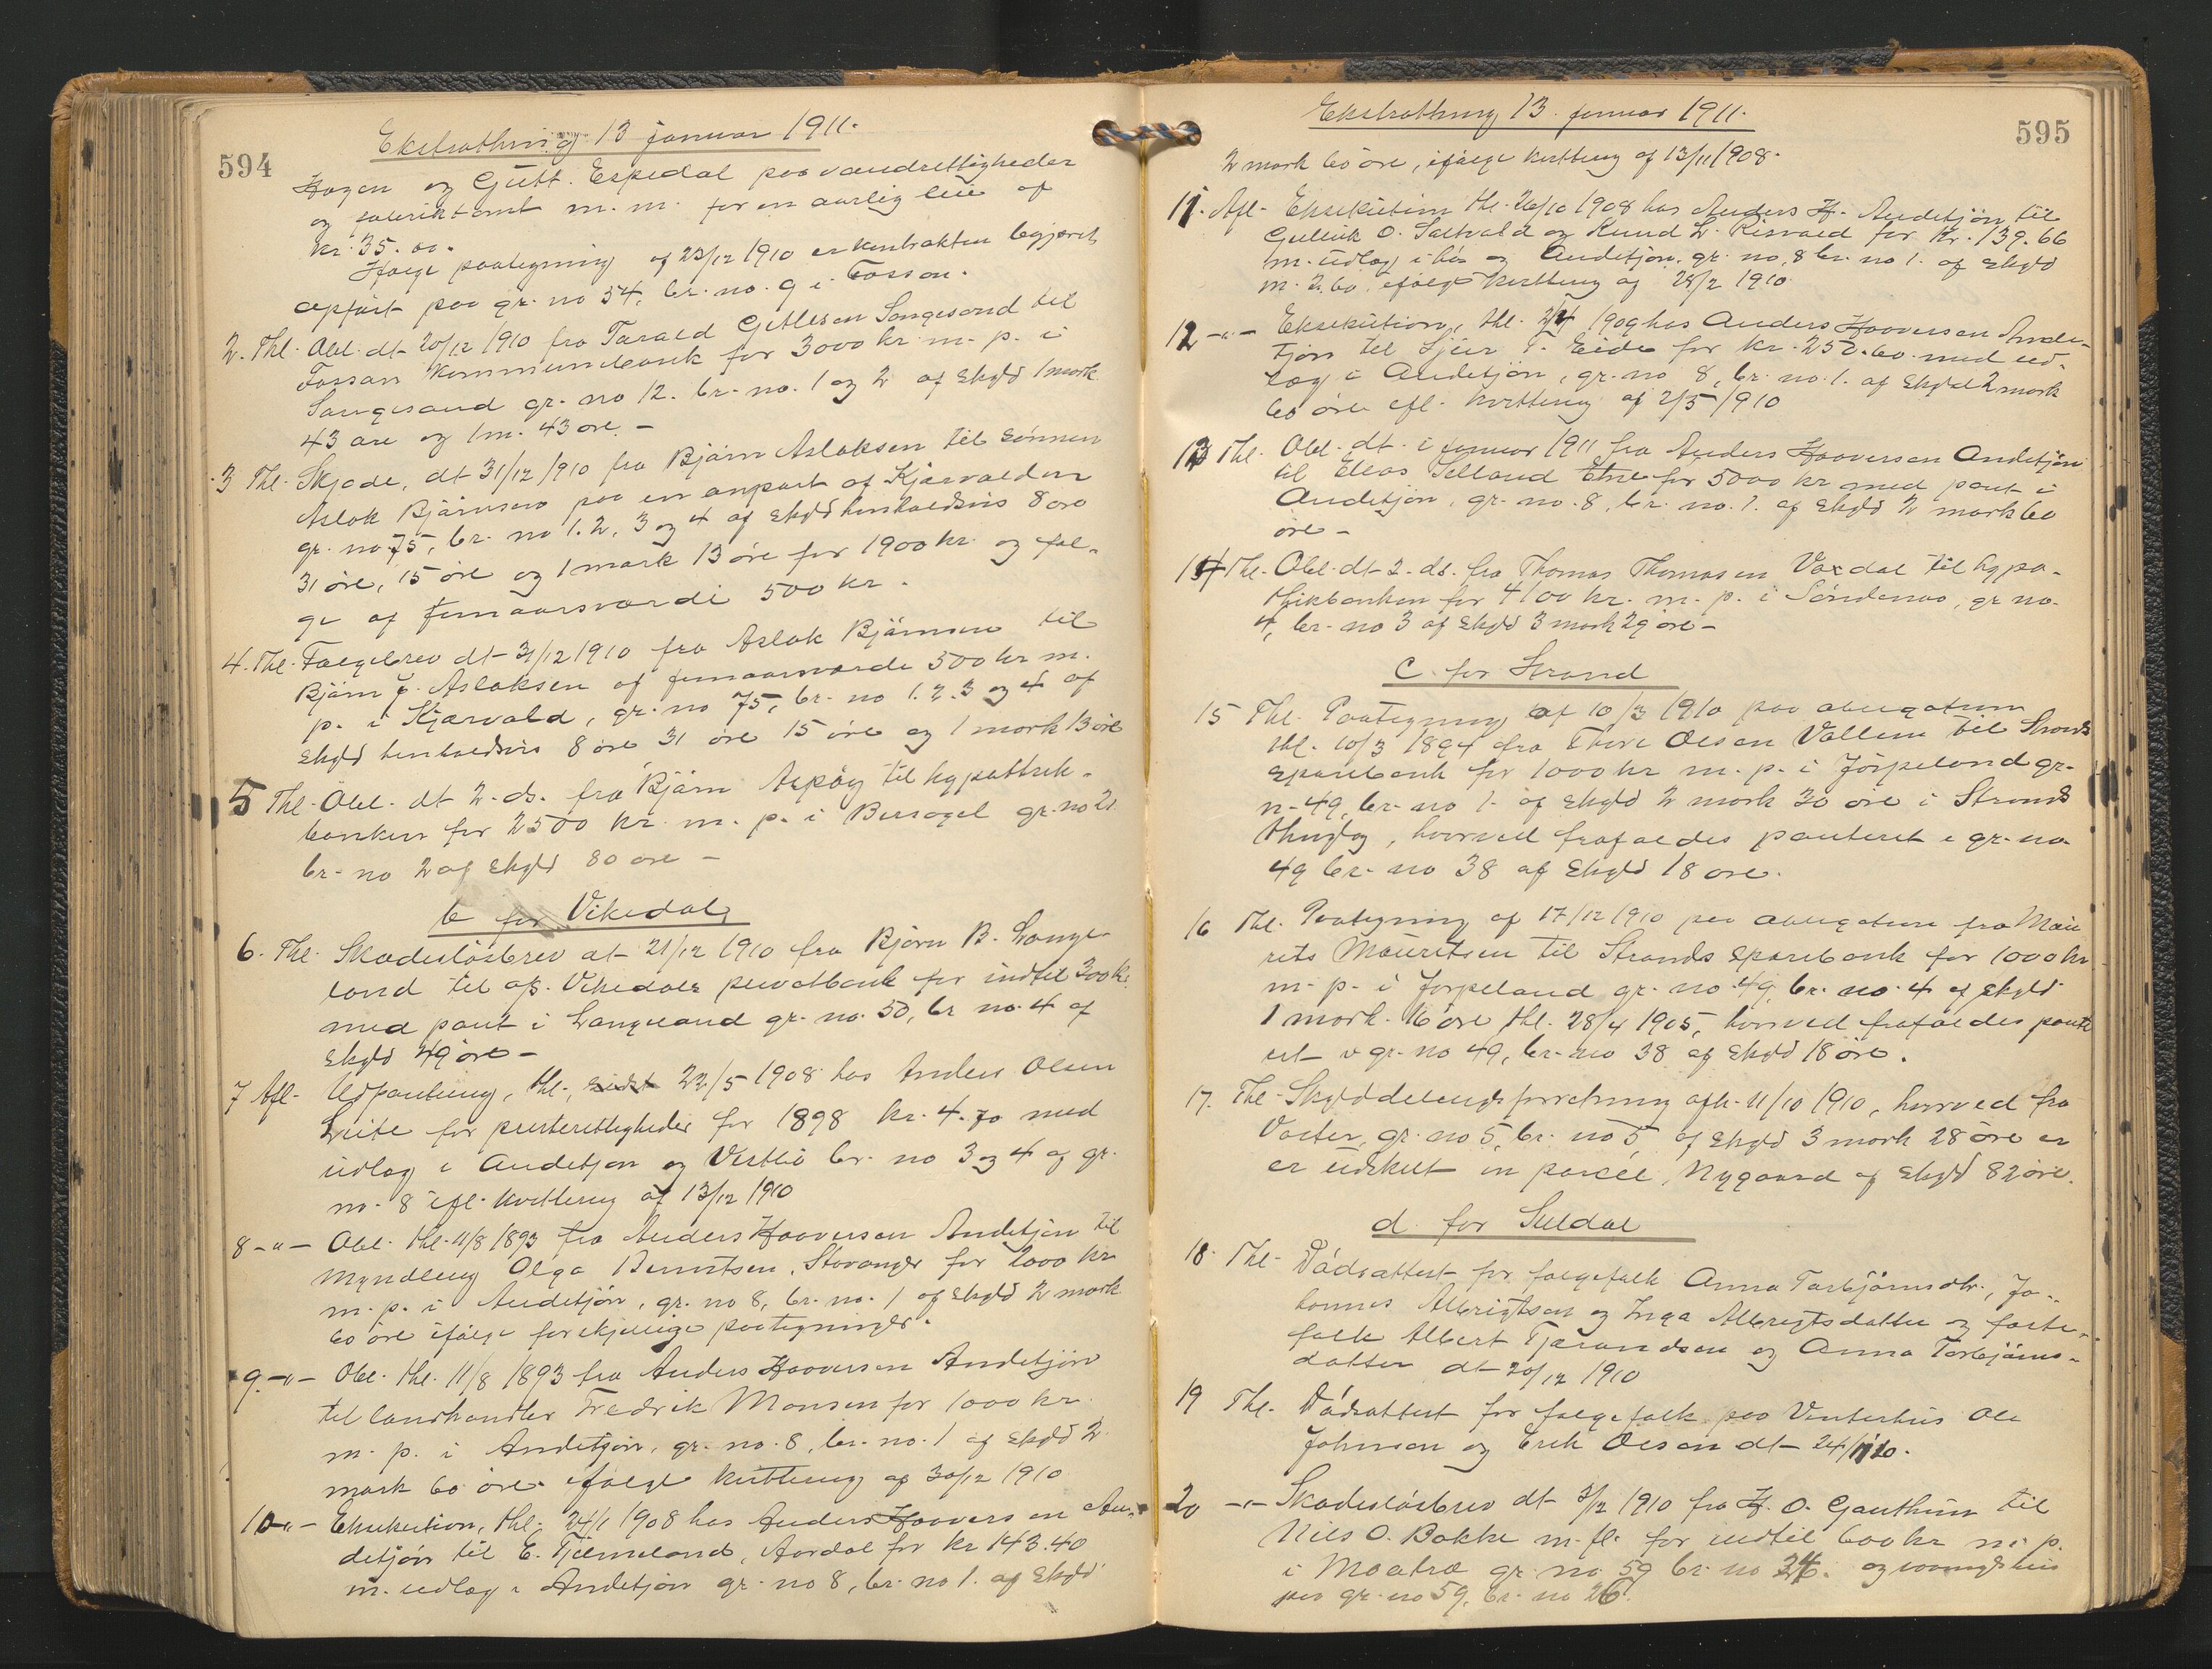 594
Ekstrathing 13 januar 1911.
Hagen og Gutt. Espedal paa vandrettigheder
og fabriktomt m. m. for en aarlig leie af
kr. 35.00.
Ifølge paategning af 23/12 1910 er kontrakten begjært
opført paa gr. no 54, br. no. 9 i Fossan.
2. Thl. Obl. dt. 20/12 1910 fra Tarald Gitlesen Songesand til
Fossan Kommunebank for 3000 kr m. p. i
Songesand gr. no 12. br. no. 1 og 2 af skyld 1 mark
43 øre og 1 m. 43 øre. -
3 Thl. Skjøde, dt 31/12 1910 fra Bjørn Aslaksen til sønnen
Aslak Bjørnsen paa en anpart af Kjærvolden
gr. no 75, br. no 1. 2, 3 og 4 af skyld henholdsvis 8 øre
31 øre, 15 øre og 1 mark 13 øre for 1900 kr. og fol-
ge af femaarsværdi 500 kr.
4. Thl. Folgebrev dt 31/12 1910 fra Aslak Bjørnsen til
Bjørn J. Aslaksen af femaarsværdi 500 kr m.
p. i Kjærvold, gr. no 75, br. no 1. 2. 3 og 4 af
skyld henholdsvis 8 øre 31 øre 15 øre og 1 mark 13 øre
5 Thl. Obl. dt 2. ds. fra Bjørn Aspøy til hypothek-
banken for 2500 kr. m. p. i Bersagel gr. no 21
br. no 2 af skyld 80 øre -
b for Vikedal
6. Thl. Skadesløsbrev dt 21/12 1910 fra Bjørn B. Lange-
land til a/s. Vikedals privatbank for indtil 300 kr.
med pant i Langeland gr. no. 50, br no. 4 af
skyld 49 øre -
7 Afl. Udpantning, thl., 22/5 1908 hos Anders Olsen
Leite for presterettigheder for 1898 kr. 4.70 med
udlæg i Andetjøn og Vestlie br. no 3 og 4 af gr.
no. 8 ifl. kvittering af 13/12 1910
8 -"- Obl. thl. 11/8 1893 fra Anders Haaversen Andetjøn til
Myndling Olga Berntsen, Stavanger for 2000 kr
m. p. i Andetjøn, gr. no 8, br. no. 1 af skyld 2 mark
60 øre ifølge forskjellige paategninger.
9. -"- Obl. thl. 11/8 1893 fra Anders Haaversen Andetjøn
til landhandler Fredrik Monsen for 1000 kr.
m. p. i Andetjøn, gr. no. 8, br. no. 1 af skyld 2
mark 60 øre ifølge kvittering af 30/12 1910
10 -"- Eksekution, thl. 24/1 1908 hos Anders Haaversen An-
detjøn til E. Tjelmeland, Aardal for kr 143.40
m. udlæg i Andetjøn gr. no 8, br. no 1. af skyld
595
Ekstrathing 13. januar 1911.
2 mark 60 øre, ifølge kvittering af 13/11 1908.
11. Afl. Eksekution thl. 26/10 1908 hos Anders H. Andetjøn til
Gullik O. Saltvold og Knud L. Risvold for kr. 139.66
m. udlæg i løs og Andetjøn, gr. no. 8 br. no 1. af skyld
m. 2.60. ifølge kvittering af 28/2 1910
12 -"- Eksekution, thl. 2/4 1909 hos Anders Haaversen Ande-
tjøn til Sjur T. Eide for kr. 252.60 med ud-
læg i Andetjøn, gr. no 8, br. no. 1. af skyld 2 mark
60 øre efl. kvittering af 2/5 1910
13 Thl. Obl. dt. i januar 1911 fra Anders Haaversen Andetjøn
til Elias Telland Etne for 5000 kr med pant i
Andetjøn, gr. no. 8, br. no. 1. af skyld 2 mark 60
øre -
14 Thl. Obl. dt 2. ds. fra Thomas Thomasen Vardal til hypo-
thikbanken for 4100 kr. m. p. i Søndenaa, gr no.
4, br. no 3 af skyld 3 mark 29 øre -
C. for Strand
15 Thl. Paategning af 10/3 1910 paa obligation
thl. 10/3 1894 fra Thore Olsen Vallem til Strands
sparebank for 1000 kr m. p. i Jørpeland gr.
n. 49, br. no 1. af skyld 2 mark 30 øre i Strands
thinglag, hvorved frafaldes panteret i gr. no
49 br. no 38 af skyld 18 øre.
16 Thl. Paategning af 17/12 1910 paa obligation fra Mau
rits Mauritsen til Strands sparebank for 1000 kr
m. p. i Jørpeland gr. no 49, br. no. 4 af skyld
1 mark. 16 øre thl. 28/4 1905, hvorved frafaldes pante
ret i gr. no 49, br. no 38 af skyld 18 øre.
17. Thl. Skylddelingsforretning afh. 11/10 1910, hvorved fra
Voster, gr. no 5, br. no 5 af skyld 3 mark 28 øre er
er udskilt en parcel, Nygaard af skyld 82 øre.
d. for Suldal
18. Thl. Dødsattest for folgefolk Anna Torbjørnsdtr., Jo-
hannes Albrigtsen og Inga Albrigtsdatter og faste-
folk Albert Tjerandsen og Anna Torbjørns-
datter dt 20/12 1910
19 Thl. Dødsattest for folgefolk paa Vinterhus Ole
Johnsen og Erik Olsen dt 24/11 10.
20 -"- Skadesløsbrev dt 3/12 1910 fra H. O. Gauthun til
Nils O. Bakke m. fl. for indtil 600 kr m. p.
i Moatræ gr. no 59 br. no 24. og vaaningshus
paa gr. no 59, br. no 26.